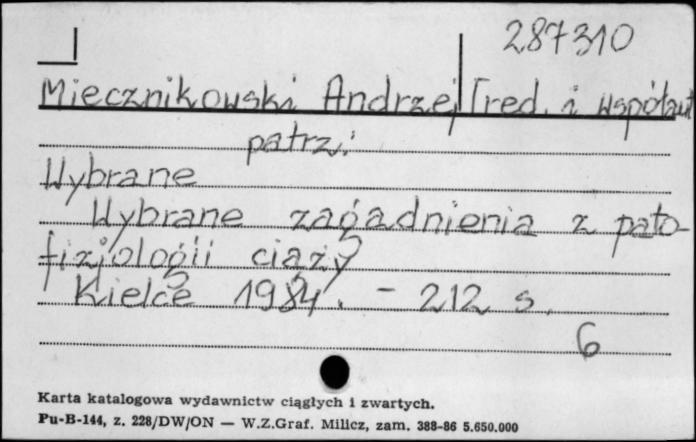 287310
Miecznikowski Andrzej [red. i współaut
patrz:
Wybrane
Wybrane zagadnienia z pato-
fizjologii ciąży
Kielce 1984. - 212 s.
6
Karta katalogowa wydawnictw ciągłych i zwartych.
Pu-B-144, z. 228/DW/ON — W.Z.Graf. Milicz, zam. 388-86 5.650.000